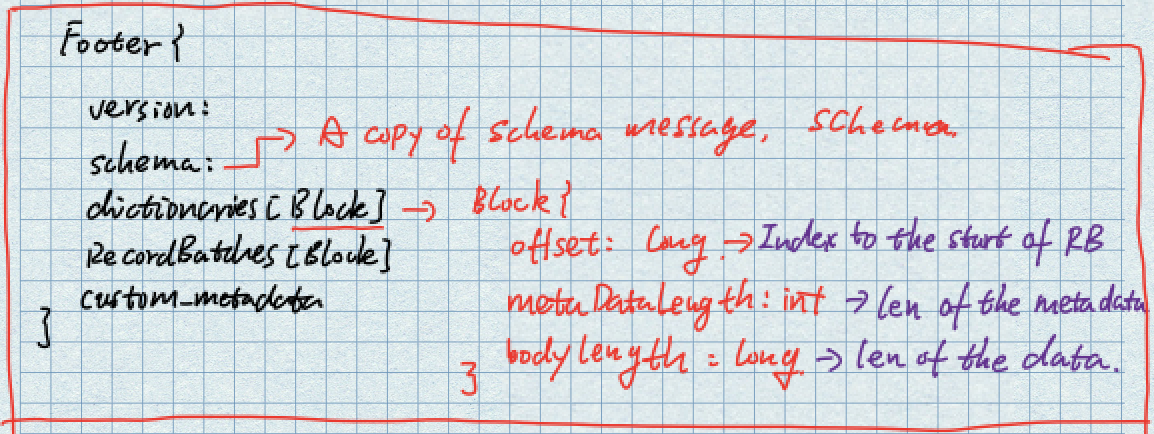 Footer {
version:
schema: → A copy of schema message, schema.
dictionaries [Block] → Block {
RecordBatches [Block]
offset: long → Index to the start of RB
custom_metadata
metaDataLength: int → len of the metadata
}
bodyLength: long → len of the data.
}